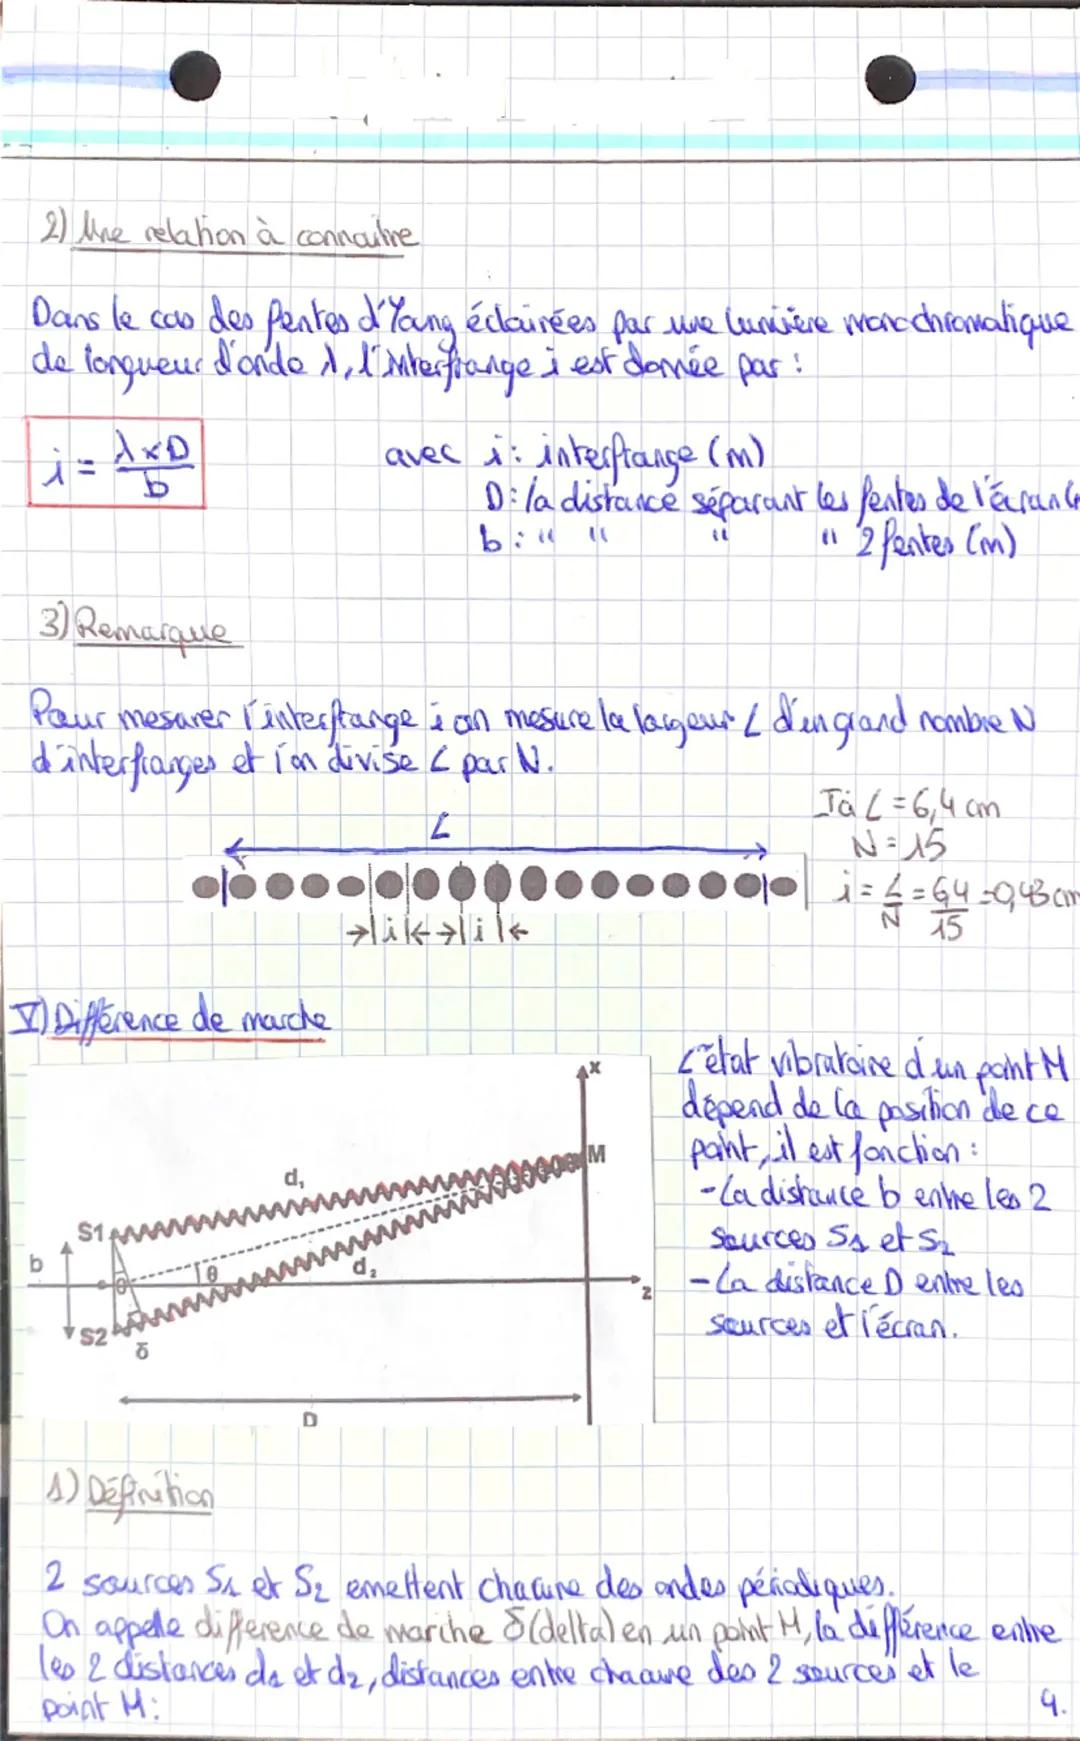 2) Une relation à connaître
Dans le cas des fentes d'Yang éclairées par une lumière monochromatique
de longueur d'onde λ, l'interfrange i est donnée par :
i = λ×D / b
avec i : interfrange (m)
D : la distance séparant les fentes de l'écran
b : " " " " 2 fentes (m)
3) Remarque
Pour mesurer l'interfrange i on mesure la largeur L d'un grand nombre N
d'interfranges et l'on divise L par N.
L
Ici L = 6,4 cm
N = 15
i = L/N = 6,4/15 = 0,43 cm
i i
V) Différence de marche
L'état vibratoire d'un point M
dépend de la position de ce
point, il est fonction :
- La distance b entre les 2
sources S1 et S2
- La distance D entre les
sources et l'écran.
x
M
d1
S1
b
θ
d2
z
S2
δ
D
1) Définition
2 sources S1 et S2 emettent chacune des ondes périodiques.
On appelle difference de marche δ (delta) en un point M, la différence entre
les 2 distances d1 et d2, distances entre chacune des 2 sources et le
point M :
4.